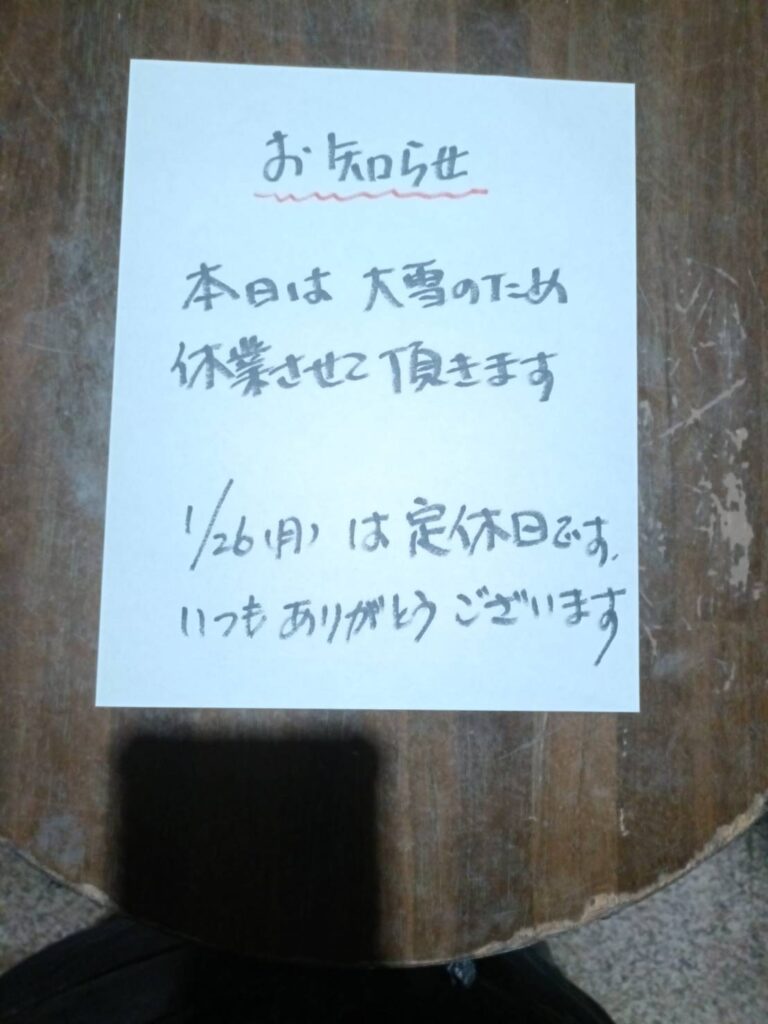 お知らせ
本日は 大雪のため
休業させて 頂きます
1/26(月) は 定休日です.
いつも ありがとう ございます